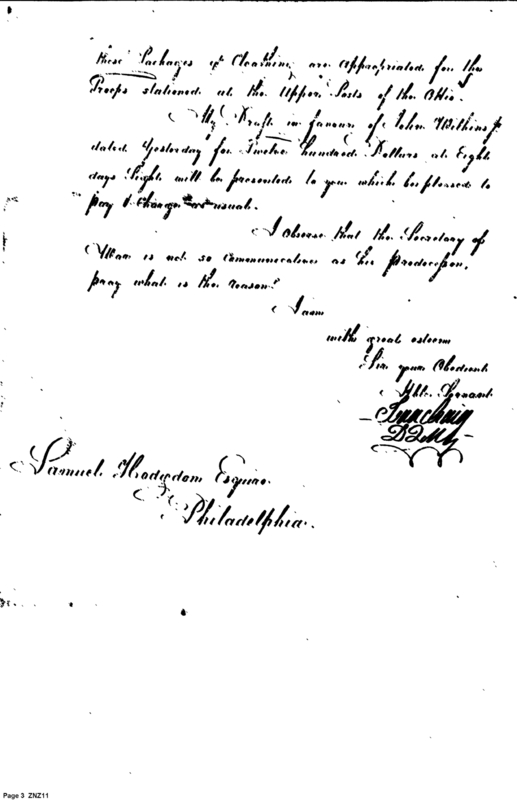 these Packages of Cloathing are appropriated for the
Troops stationed at the Upper Posts of the Ohio.
My Draft in favour of John Wilkins Jr
dated Yesterday for Twelve hundred Dollars at Eight
days Sight will be presented to you which be pleased to
pay & charge as usual.
I observe that the Secretary of
War is not so communicative as his predecessor,
pray what is the reason?
I am
with great esteem
Sir your Obedient
Hble. Servant
Isaac Craig
DQMG
Samuel Hodgdon Esquire
Philadelphia.
Page 3 ZNZ11